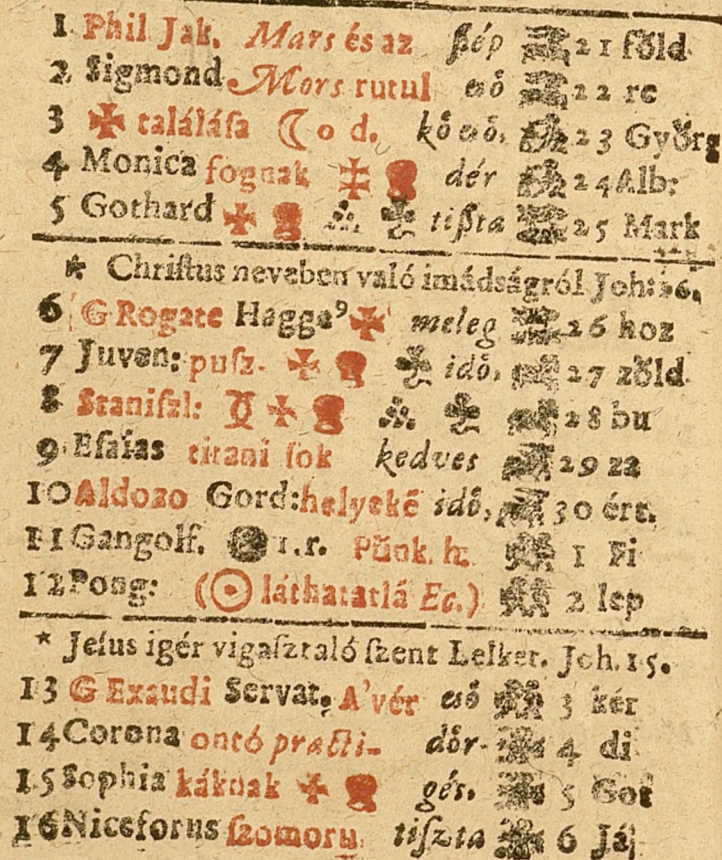 1 Phil Jak. Mars és az ſzép 21 főld
2 Sigmond Mors rutul eső 22 re
3 ✠ talála̋ſa ☾ o d. kőeső, 23 Győrg
4 Monica fognak dér 24 Alb:
5 Gothard ✠ tiſzta 25 Mark
* Chriſtus neveben való imádságról Joh: 16.
6 G Rogate Hagge⁹ ✠ meleg 26 hoz
7 Juven: puſz- ✠ idő, 27 zőld
8 Staniſzl: ✠ 28 bu
9 Eſaias titani ſok kedves 29 za
10 Aldozo Gord: helyekē idő, 30 ért.
11 Gangolf. 1.r. Pűnk. h. 1 Fi
12 Pong: (☉ láthatatlā Ec.) 2 lep
* Jeſus igér vigaſztaló ſzent Lelket. Joh. 15.
13 G Exaudi Servat. A'vér eső 3 kér
14 Corona ontó practi- dőr- 4 di
15 Sophia káknak ✠ gés. 5 Got
16 Niceforus ſzomoru tiſzta 6 Já